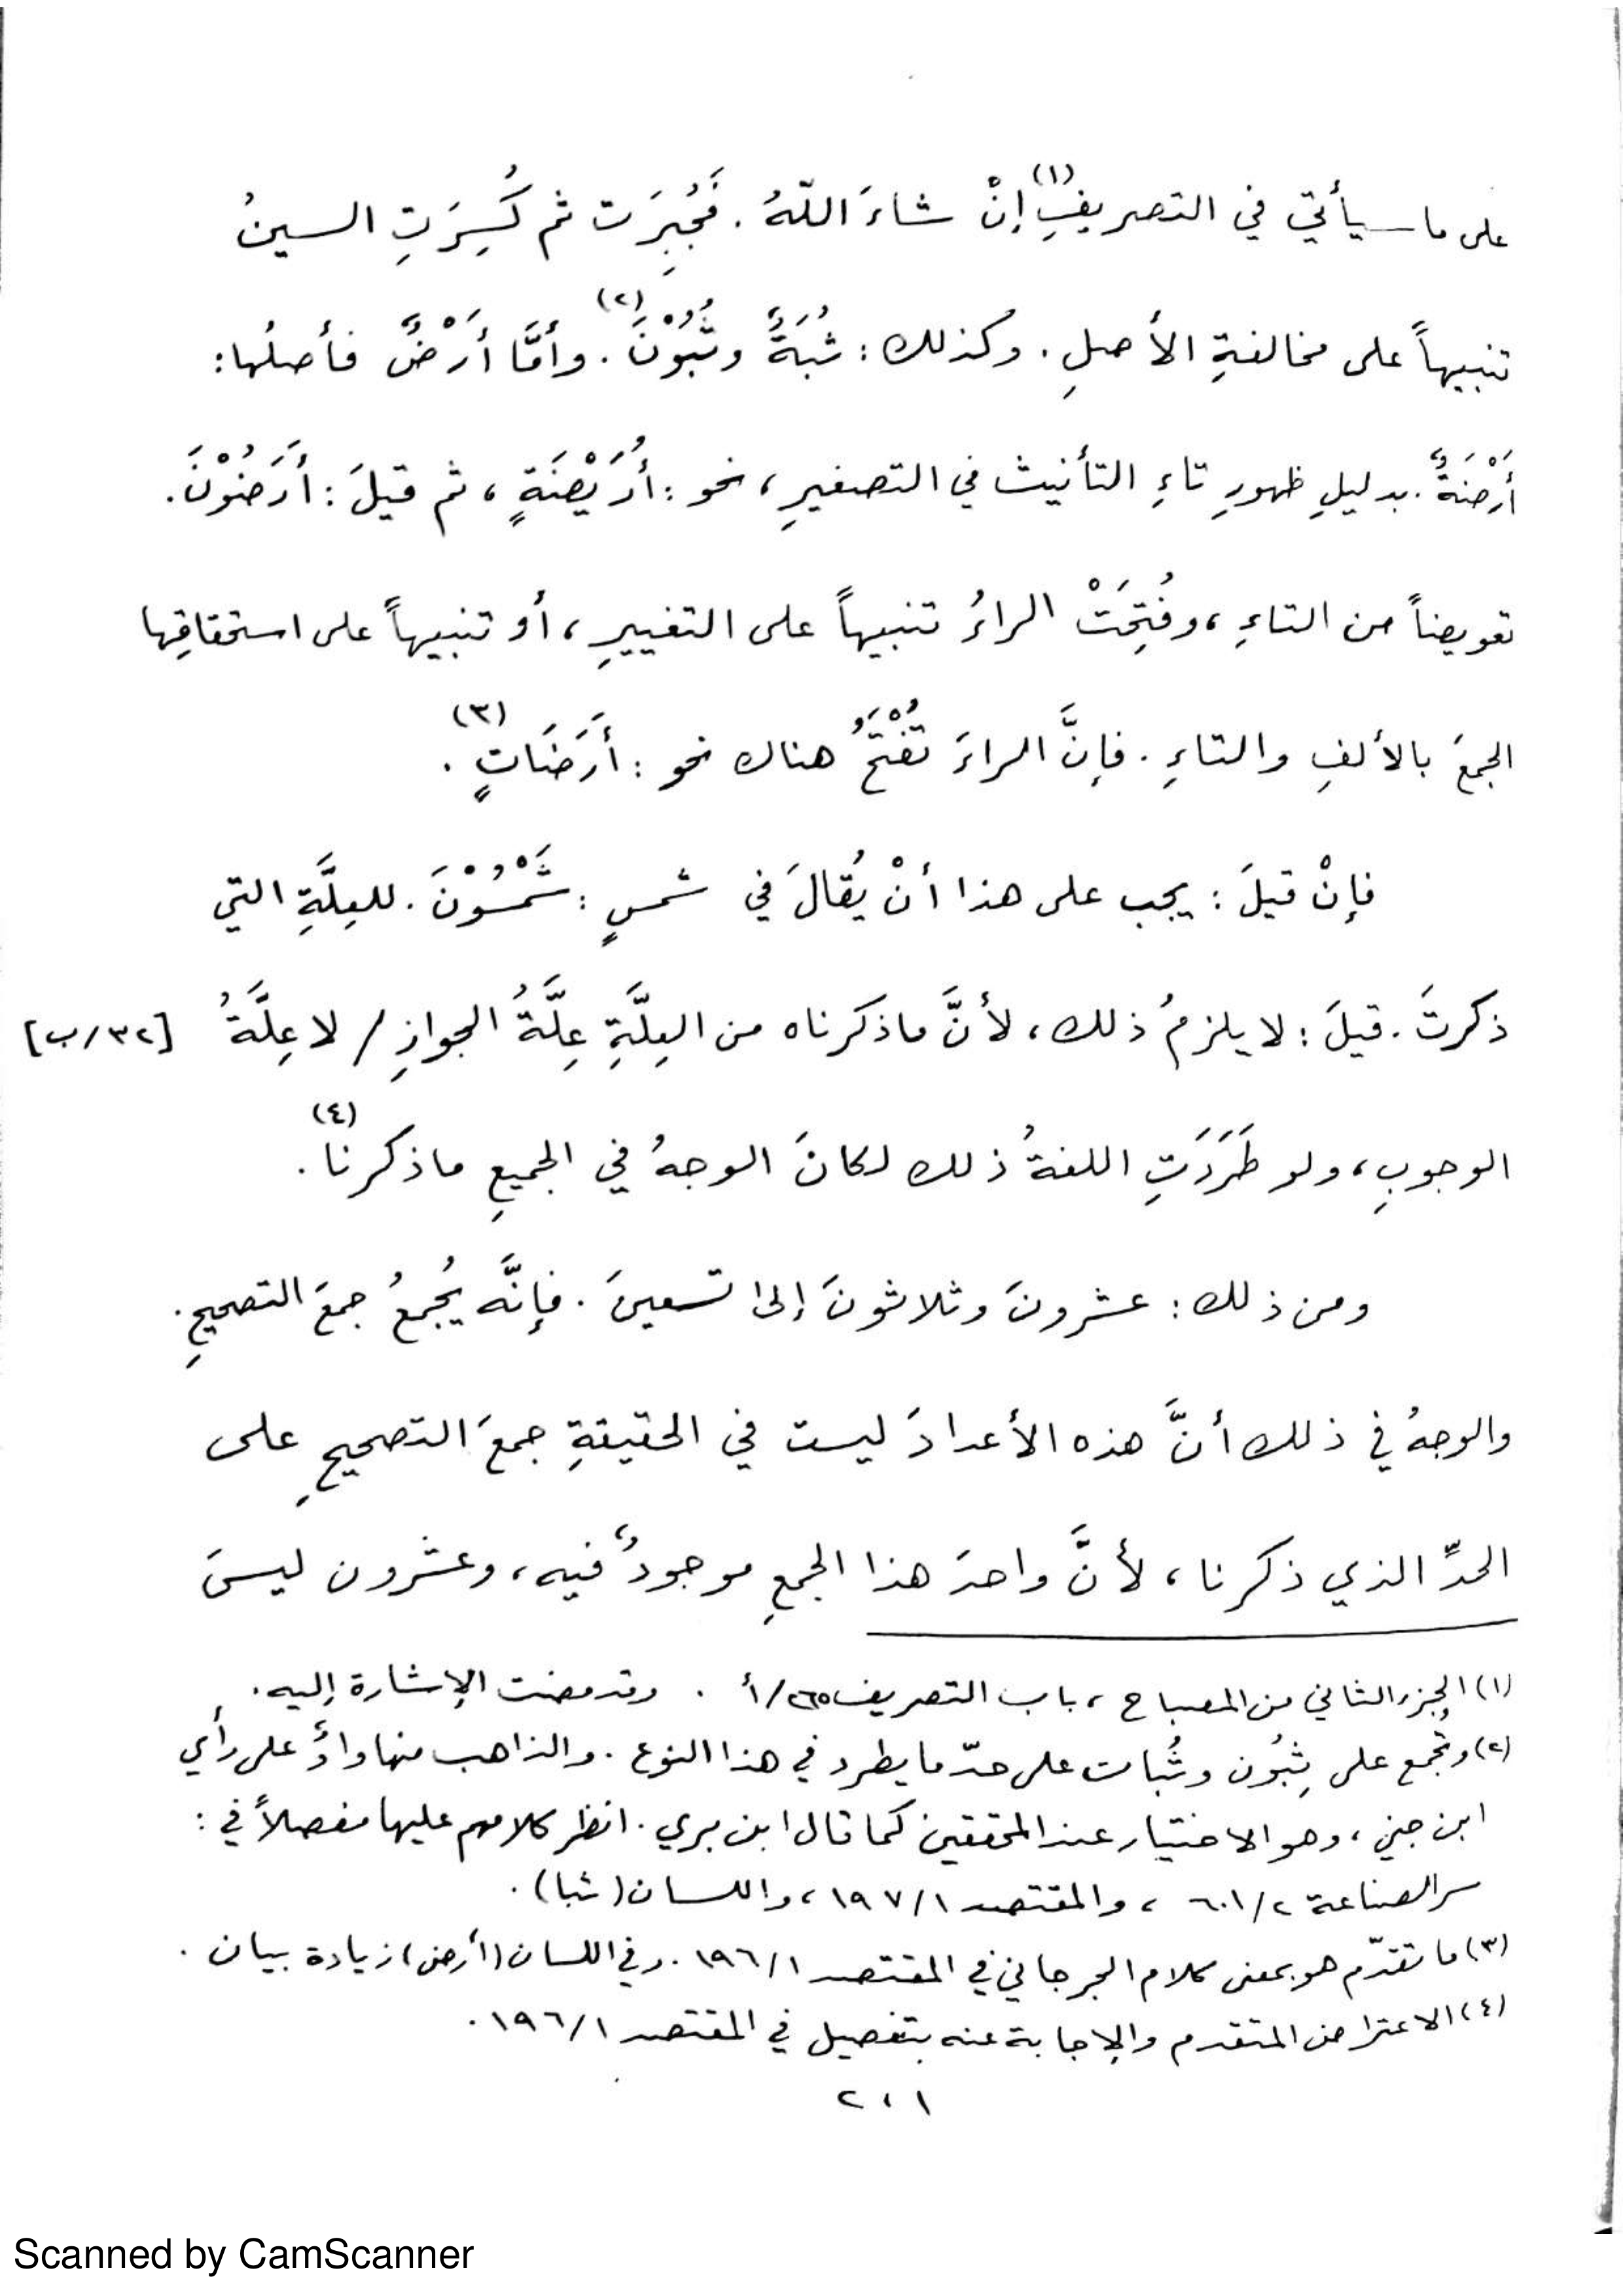 على ما سيأتي في التصريفِ(١) إنْ شاءَ اللّهُ. فَجُبِرَت ثم كُسِرَتِ السينُ
تنبيهاً على مخالفةِ الأصلِ. وكذلك: ثُبَةٌ وثُبُوْنَ(٢). وأمَّا أَرْضٌ فأصلُها:
أَرْضَةٌ. بدليلِ ظهورِ تاءِ التأنيث في التصغيرِ، نحو: أُرَيْضَةٍ، ثم قيلَ: أَرَضُوْنَ.
تعويضاً من التاءِ، وفُتِحَتْ الراءُ تنبيهاً على التغييرِ، أو تنبيهاً على استحقاقِها
الجمعَ بالألفِ والتاءِ. فإنَّ الراءَ تُفْتَحُ هناك نحو: أَرَضَاتٍ(٣).
فإنْ قيلَ: يجب على هذا أنْ يُقالَ في شمسٍ: شَمْسُوْنَ. للعِلَّةِ التي
ذكرتَ. قيلَ: لا يلزمُ ذلك، لأنَّ ما ذكرناه من العِلَّةِ عِلَّةُ الجوازِ / لا عِلَّةُ [٣٢/ب]
الوجوبِ، ولو طَرَدَتِ اللغةُ ذلك لكانَ الوجهُ في الجميعِ ما ذكرنا(٤).
ومن ذلك: عشرونَ وثلاثونَ إلى تسعينَ. فإنَّه يُجمعُ جمعَ التصحيحِ.
والوجهُ في ذلك أنَّ هذه الأعدادَ ليست في الحقيقةِ جمعَ التصحيحِ على
الحدِّ الذي ذكرنا، لأنَّ واحدَ هذا الجمعِ موجودٌ فيه، وعشرون ليسَ
(١) الجزء الثاني من المصباح، باب التصريف ٢٦٥/أ. وقد مضت الإشارة إليه.
(٢) وتُجمع على ثِبُون وثُبات على حدّ ما يطرد في هذا النوع. والذاهب منها واوٌ على رأي
ابن جني، وهو الاختيار عند المحققين كما قال ابن بري. انظر كلامهم عليها مفصلاً في:
سر الصناعة ٦٠١/٢، والمقتصد ١٩٧/١، واللسان (ثبا).
(٣) ما تقدّم هو بمعنى كلام الجرجاني في المقتصد ١٩٦/١. وفي اللسان (أرض) زيادة بيان.
(٤) الاعتراض المتقدم والإجابة عنه بتفصيل في المقتصد ١٩٦/١.
٢٠١
Scanned by CamScanner